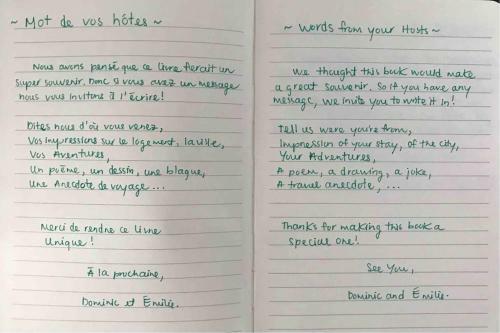 ~ Mot de vos hôtes ~
Nous avons pensé que ce livre ferait un
super souvenir. Donc si vous avez un message
nous vous invitons à l'écrire!
Dites nous d'où vous venez,
Vos impressions sur le logement, la ville,
Vos Aventures,
Un poème, un dessin, une blague,
Une Anecdote de voyage ...
Merci de rendre ce livre
Unique!
À la prochaine,
Dominic et Émilie.
~ Words from your Hosts ~
We thought this book would make
a great souvenir. So if you have any
message, we invite you to write it in!
Tell us were you're from,
Impression of your stay, of the city,
Your Adventures,
A poem, a drawing, a joke,
A travel anecdote, ...
Thanks for making this book a
special one!
See You,
Dominic and Émilie.